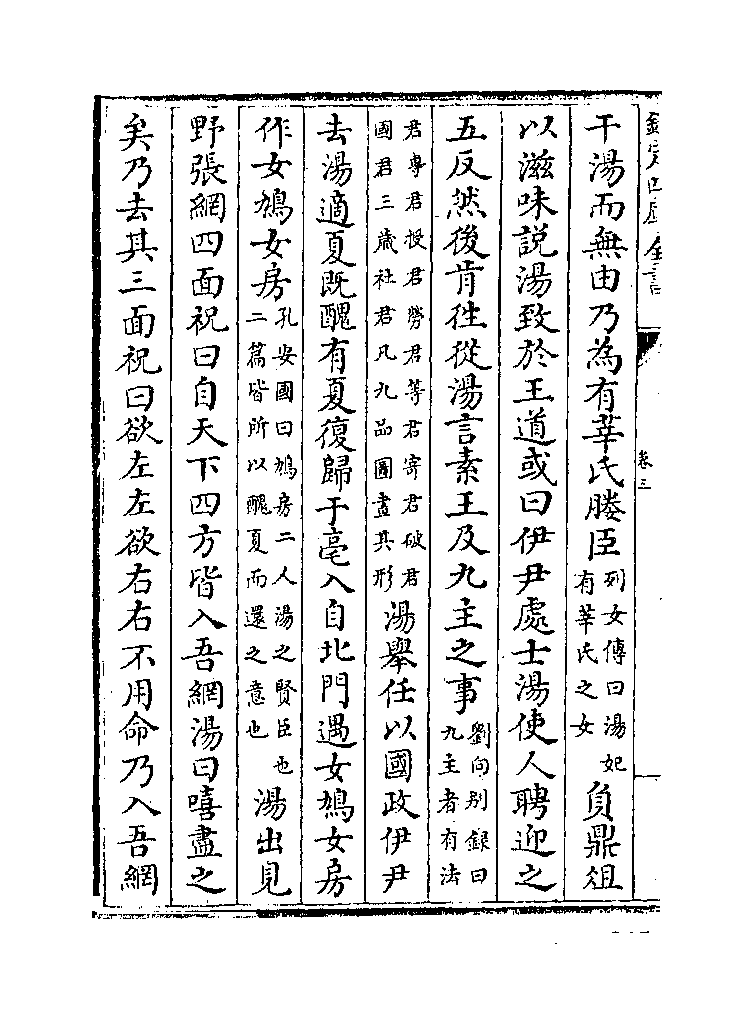 欽定四庫全書
卷三
干湯而無由乃為有莘氏媵臣列女傳曰湯妃有莘氏之女負鼎俎
以滋味說湯致於王道或曰伊尹處士湯使人聘迎之
五反然後肯往從湯言素王及九主之事劉向别録曰九主者有法
君專君授君勞君等君寄君破君國君三歳社君凡九品圖畫其形湯舉任以國政伊尹
去湯適夏既醜有夏復歸于亳入自北門遇女鳩女房
作女鳩女房孔安國曰鳩房二人湯之賢臣也二篇皆所以醜夏而還之意也湯出見
野張網四面祝曰自天下四方皆入吾網湯曰嘻盡之
矣乃去其三面祝曰欲左左欲右右不用命乃入吾網